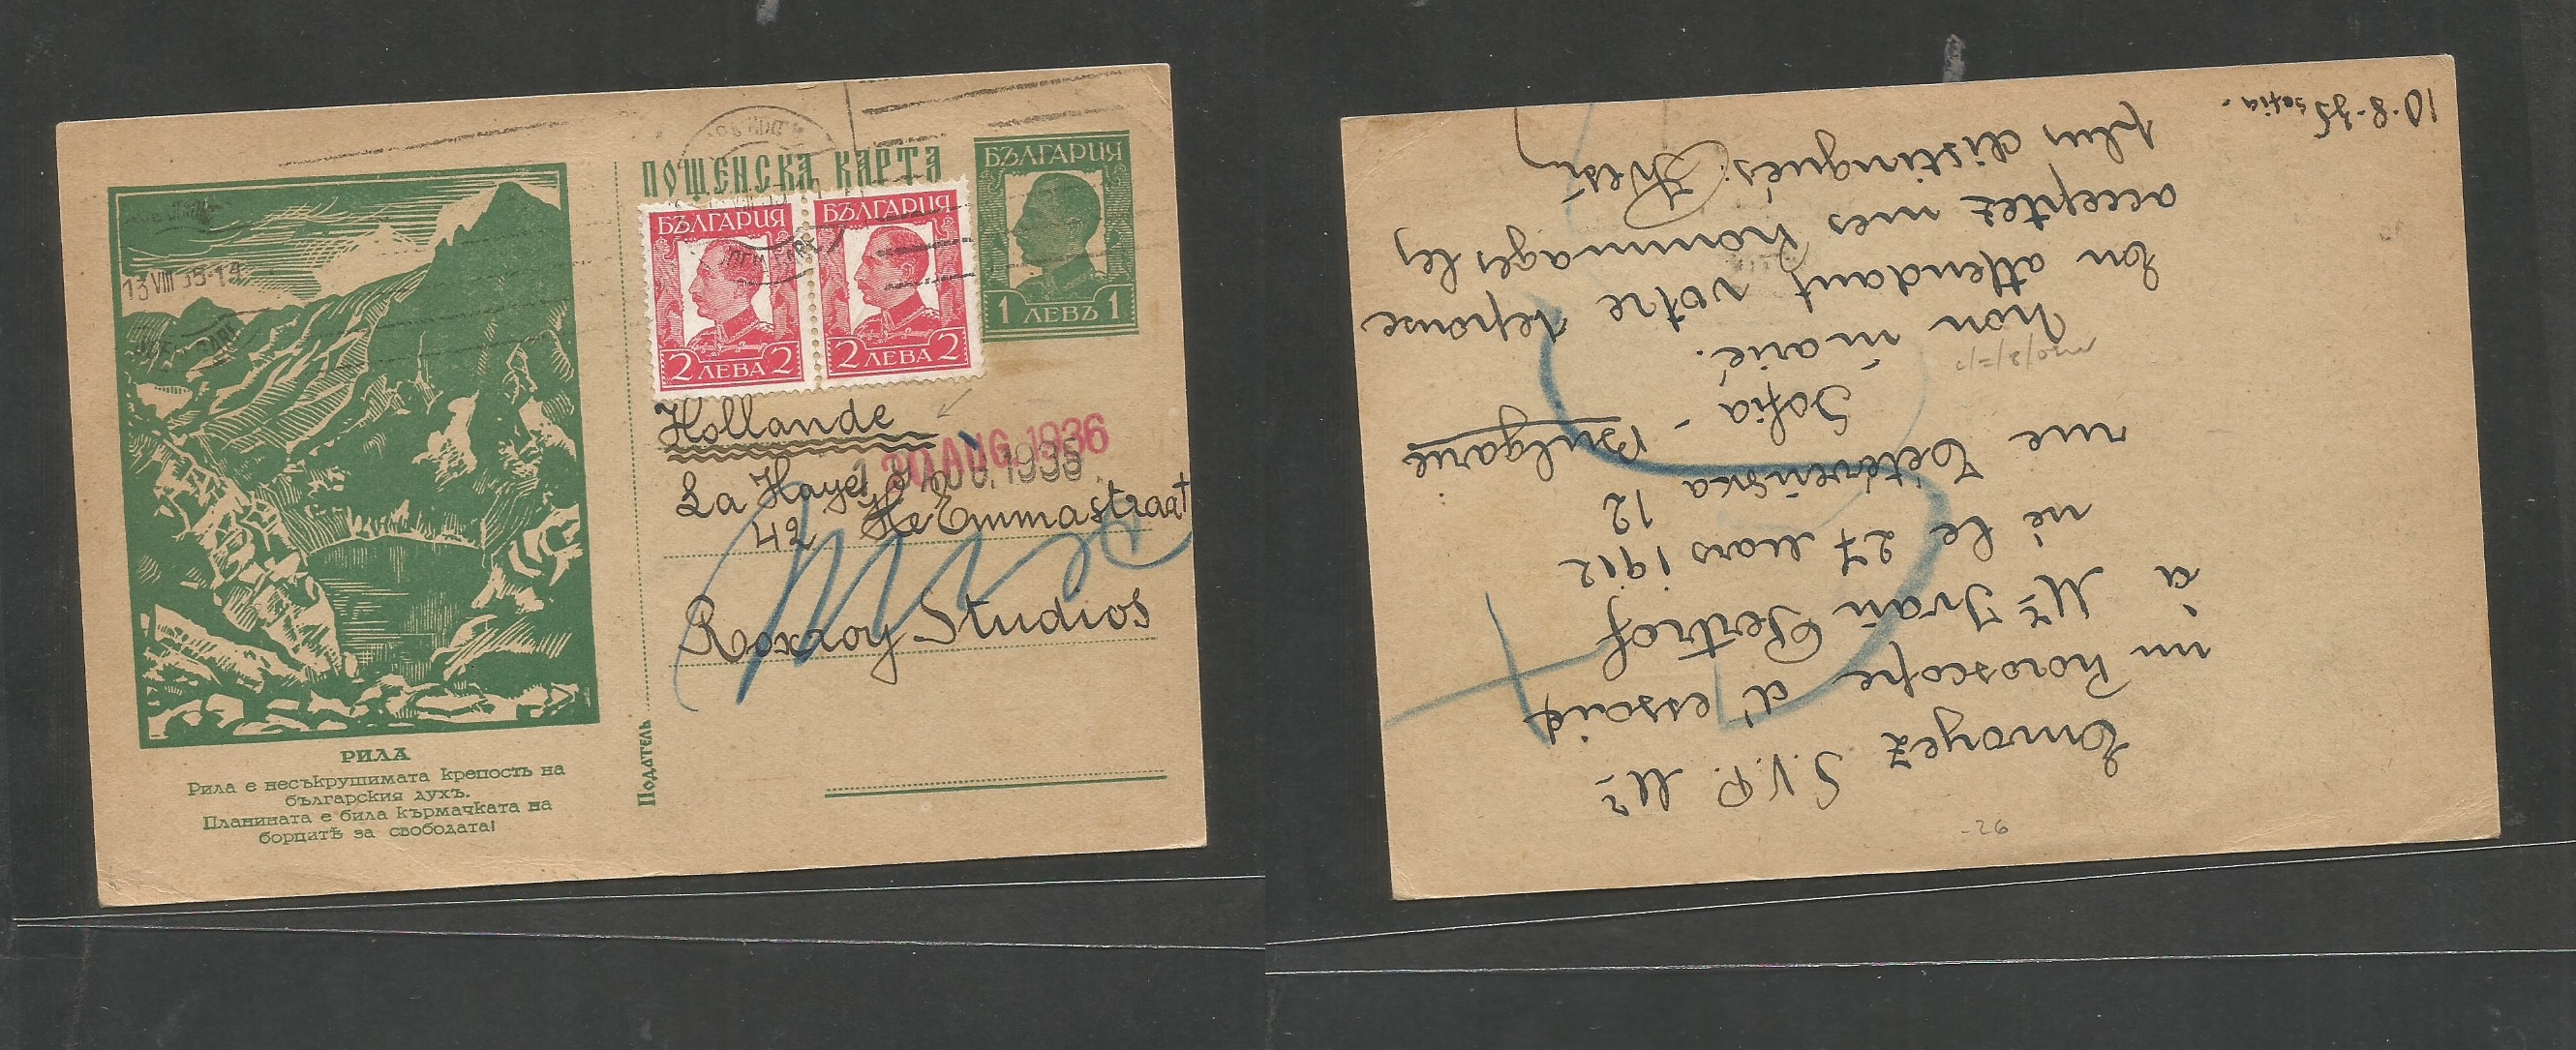 ПОЩЕНСКА КАРТА
БЪЛГАРИЯ
1 ЛЕВЪ 1
БЪЛГАРИЯ
2 ЛЕВА 2
БЪЛГАРИЯ
2 ЛЕВА 2
13 VIII 35-19
Hollande
30 AUG. 1936
AUG. 1935
La Haye
42 Emmastraat
Roxroy Studios
Податель
РИЛА
Рила е несъкрушимата крепость на
българския духъ.
Планината е била кърмачката на
борцитѣ за свободата!
Envoyez S.V.P. Mr
un horoscope d'essaie
à
Mr Ivan Pertrof
né le 27 Mars 1912
rue Tetevenska 12
Sofia - Bulgarie
Non marié.
En attendant votre reponse
acceptez mes hommages les
plus distingués.
10-8-35 Sofia.
-26